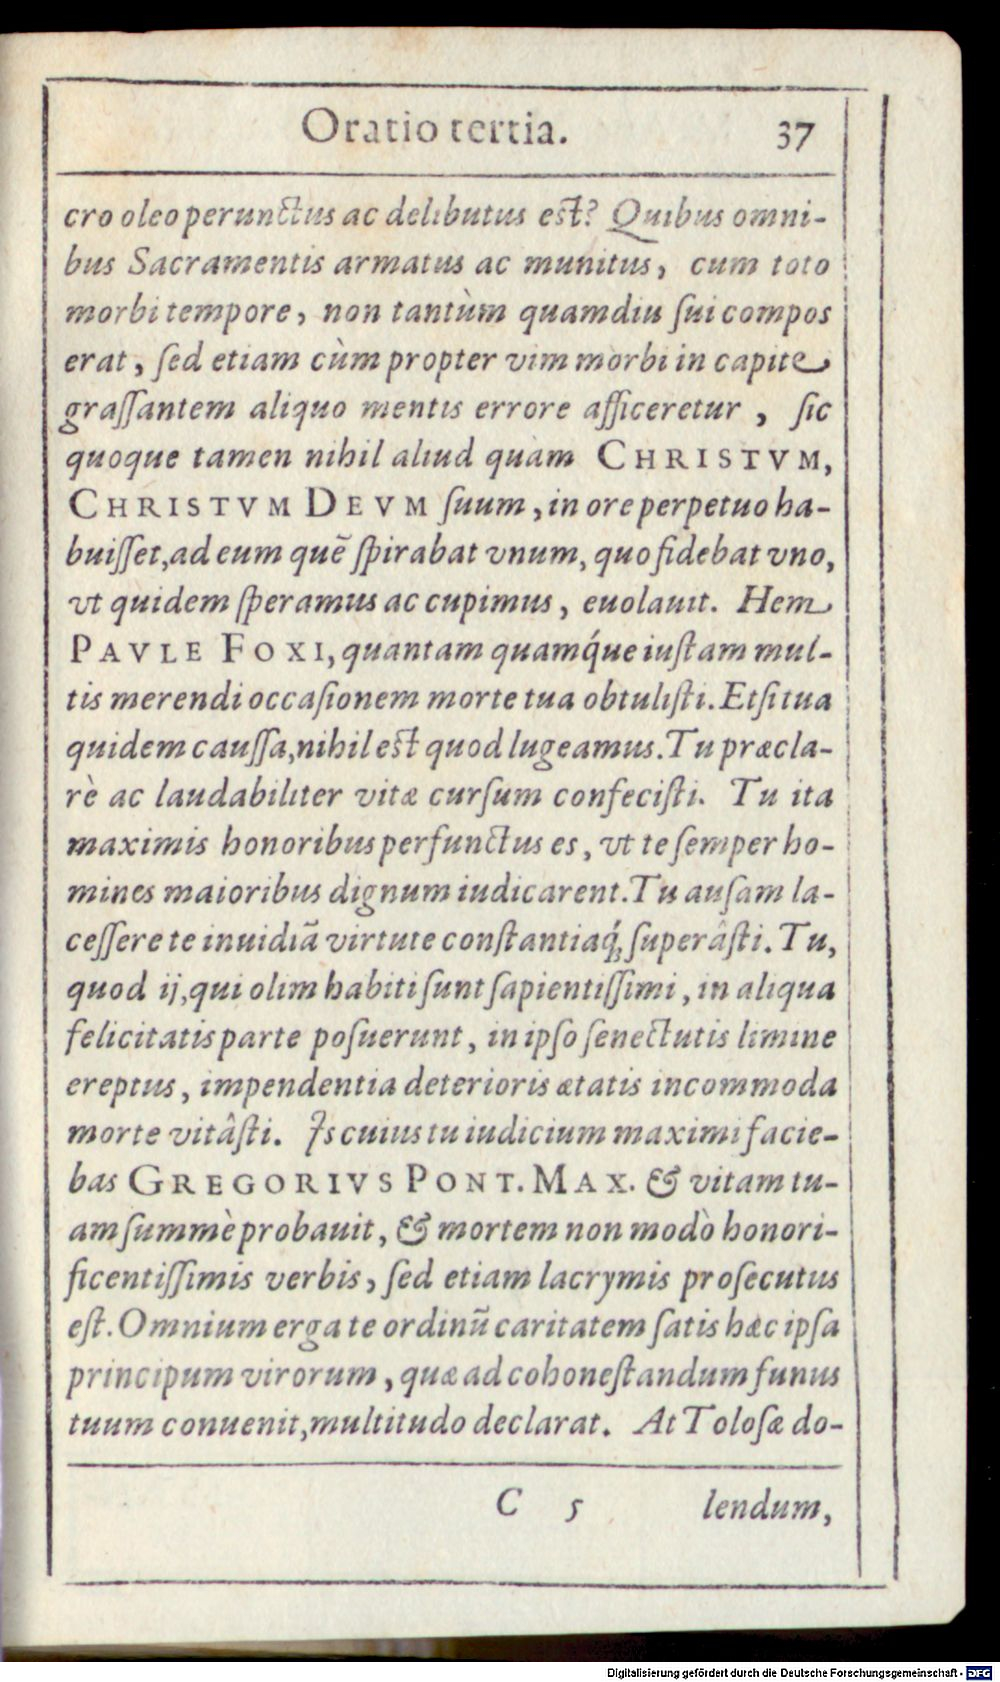 Oratio tertia. 37
cro oleo perunctus ac delibutus est? Quibus omni-
bus Sacramentis armatus ac munitus, cum toto
morbi tempore, non tantùm quamdiu ſui compos
erat, ſed etiam cùm propter vim morbi in capite
graſſantem aliquo mentis errore afficeretur, ſic
quoque tamen nihil aliud quàm CHRISTVM,
CHRISTVM DEVM ſuum, in ore perpetuo ha-
buiſſet, ad eum quẽ ſpirabat vnum, quo fidebat vno,
vt quidem ſperamus ac cupimus, euolauit. Hem
PAVLE FOXI, quantam quamq́ue iuſtam mul-
tis merendi occaſionem morte tua obtuliſti. Etſi tua
quidem cauſſa, nihil est quod lugeamus. Tu præcla-
rè ac laudabiliter vitæ curſum confeciſti. Tu ita
maximis honoribus perfunctus es, vt te ſemper ho-
mines maioribus dignum iudicarent. Tu auſam la-
ceſſere te inuidiã virtute conſtantiaq́; ſuperâſti. Tu,
quod ij, qui olim habiti ſunt ſapientiſſimi, in aliqua
felicitatis parte poſuerunt, in ipſo ſenectutis limine
ereptus, impendentia deterioris ætatis incommoda
morte vitâſti. Is cuius tu iudicium maximi facie-
bas GREGORIVS PONT. MAX. & vitam tu-
am ſummè probauit, & mortem non modò honori-
ficentiſſimis verbis, ſed etiam lacrymis proſecutus
eſt. Omnium erga te ordinũ caritatem ſatis hæc ipſa
principum virorum, quæ ad cohoneſtandum funus
tuum conuenit, multitudo declarat. At Toloſæ do-
C 5 lendum,
Digitalisierung gefördert durch die Deutsche Forschungsgemeinschaft - DFG